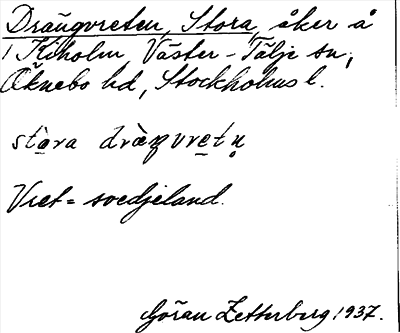 Drängvreten, Stora, åker å
Kiholm, Väster-Tälje sn,
Öknebo hd, Stockholms l.
stora dräŋvretn̥
Vret = svedjeland.
Göran Zetterberg 1937.